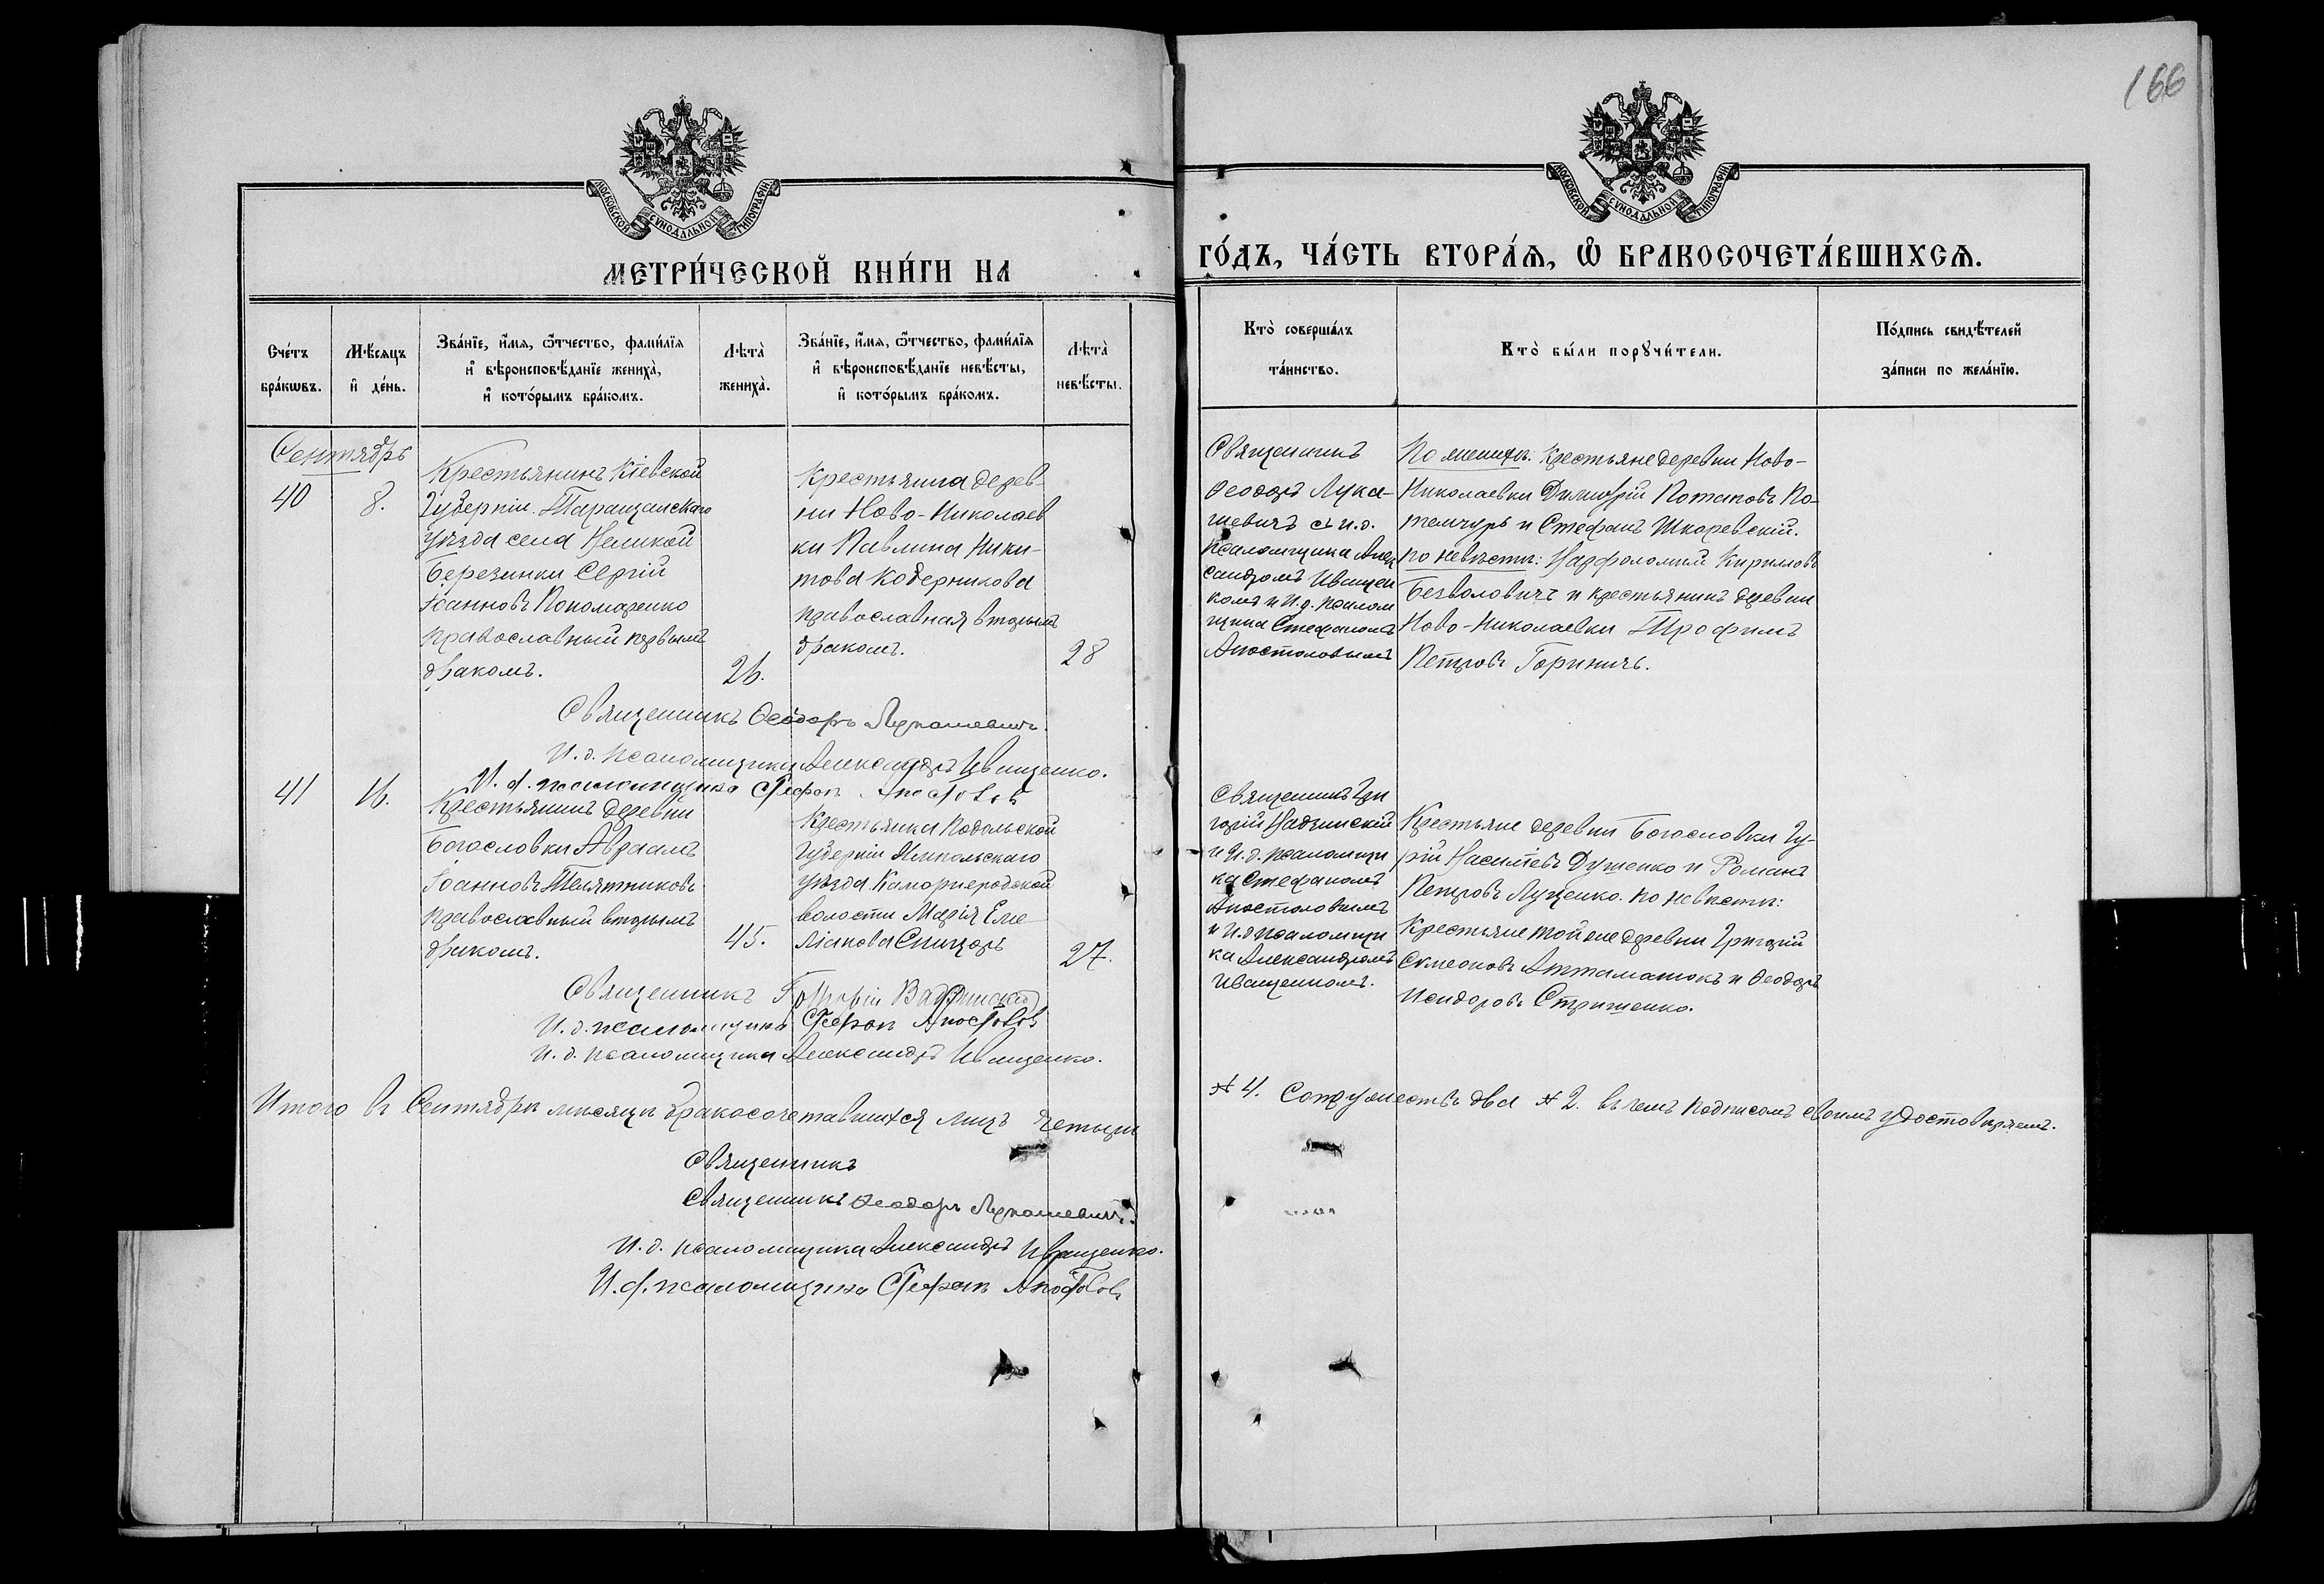 166
МОСКОВСКОЙ СѴНОДАЛЬНОЙ ТИПОГРАФІИ.
МОСКОВСКОЙ СѴНОДАЛЬНОЙ ТИПОГРАФІИ.
МЕТРИ́ЧЕСКОЙ КНИ́ГИ НА
ГО́ДЪ, ЧА́СТЬ ВТОРА́Ѧ, Ѽ БРАКОСОЧЕТА́ВШИХСѦ.
Сче́тъ
бра́кѡвъ.
Мѣ́сѧцъ
и҆ де́нь.
Зва́нїе, и҆́мѧ, ѻ҆́тчество, фами́лїѧ
и҆ вѣроисповѣ́данїе жениха̀,
и҆ кото́рымъ бра́комъ.
Лѣта̀
жениха̀.
Зва́нїе, и҆́мѧ, ѻ҆́тчество, фами́лїѧ
и҆ вѣроисповѣ́данїе невѣ́сты,
и҆ кото́рымъ бра́комъ.
Лѣта̀
невѣ́сты.
Кто̀ соверша́лъ
та́инство.
Кто̀ бы́ли порꙋчи́тели.
По́дпись свидѣ́телей
за́писи по жела́нїю.
Сентябрь
40
8.
Крестьянинъ Кіевской
Губерніи Таращанскаго
уѣзда села Великой
Березинки Сергій
Іоанновъ Пономаренко
православный первымъ
бракомъ.
26.
Крестьянка дерев-
ни Ново-Николаев
ки Павлина Ники-
това Коберникова
православная вторымъ
бракомъ.
28
Священникъ
Ѳеодоръ Лука-
шевичъ съ и.д.
псаломщика Алек
сандромъ Иващен
комъ и И.д. псалом
щика Стефаномъ
Апостоловымъ
По женихѣ. Крестьяне деревни Ново-
Николаевки Димитрій Потаповъ По-
темчуръ и Стефанъ Шкаревскій.
по невѣстѣ: Варфоломей Кириловъ
Безволовичъ и крестьянинъ деревни
Ново-Николаевки Трофимъ
Петровъ Гориничъ.
Священникъ Ѳеодоръ Лукашевичъ.
И.д. псаломщика Александръ Иващенко.
И.д. псаломщика Стефан Апостолов
41
16.
Крестьянинъ деревни
Богословки Авраамъ
Іоанновъ Телятниковъ
православный вторымъ
бракомъ.
45.
Крестьянка Подольской
Губерніи Ямпольскаго
уѣзда
волости Марія Еме
ліанова Спицаръ
27.
Священникъ Гри
горій Вадзинскій
и И.д. псаломщи
ка Стефаномъ
Апостоловымъ
и И.д псаломщи
ка Александромъ
Иващенкомъ.
Крестьяне деревни Богословки Гу-
рій Василіевъ Душенко и Романъ
Петровъ Луценко. по невѣстѣ:
Крестьяне той же деревни Григорій
Симеоновъ и Ѳеодоръ
Исидоровъ Стришенко.
Священникъ Григорій Вадзинскій
И.д. псаломщика Стефан Апостолов
И.д. псаломщика Александръ Иващенко.
Итого въ Сентябрѣ мѣсяцѣ бракосочетавшихся лицъ четыре
№ 4. Супружествъ два № 2. въ чемъ подписомъ своимъ удостовѣряемъ.
Священникъ
Священникъ Ѳеодоръ Лукашевичъ.
И.д. псаломщика Александръ Иващенко.
И.д. псаломщика Стефан Апостолов